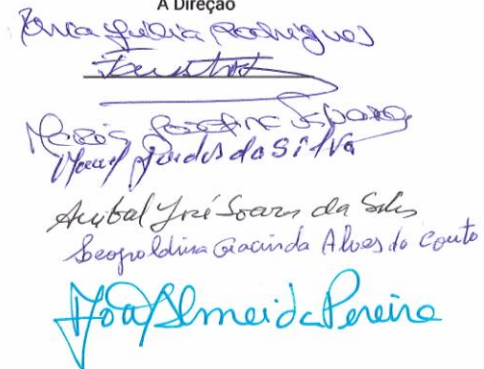 A Direção
Júlia Rodrigues
Maria
Manuel Guedes da Silva
Anibal José Soares da Silva
Leopoldina Gracinda Alves do Couto
João Almeida Pereira